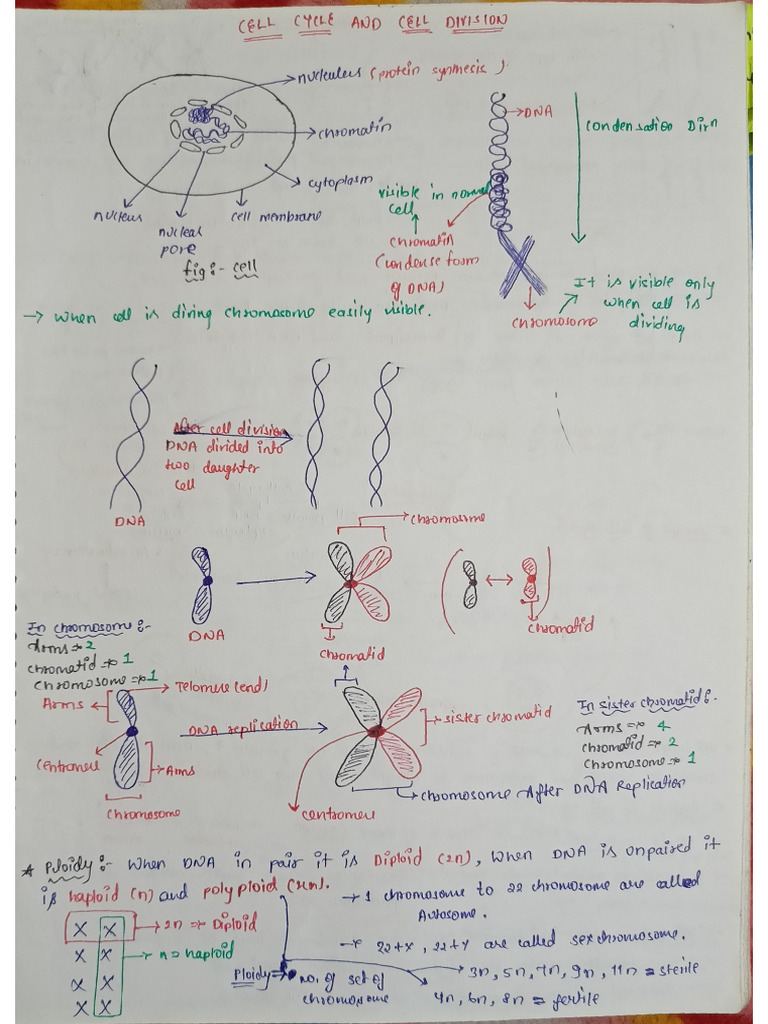 CELL CYCLE AND CELL DIVISION
nucleulus (protein synthesis)
chromatin
cytoplasm
nucleus
nucleal
pore
cell membrane
fig:- cell
DNA
condensation Dirn
visible in normal
cell
chromatin
(condense form
of DNA)
chromosome
It is visible only
when cell is
dividing
→ When cell is diving chromosome easily visible.
After cell division
DNA divided into
two daughter
cell
DNA
chromosome
DNA
chromatid
chromatid
In chromosome:-
Arms → 2
chromatid → 1
chromosome → 1
Telomere (end)
Arms
centromere
Arms
chromosome
DNA replication
sister chromatid
centromere
chromosome After DNA Replication
In sister chromatid:-
Arms → 4
chromatid → 2
chromosome → 1
* Ploidy:- When DNA in pair it is Diploid (2n), when DNA is unpaired it
is haploid (n) and polyploid
→ 1 chromosome to 22 chromosome are called
Autosome.
→ 22+x, 22+y are called sexchromosome.
X X → 2n → Diploid
X X → n → haploid
X X
X X
Ploidy → no. of set of
chromosome
3n, 5n, 7n, 9n, 11n = sterile
4n, 6n, 8n = fertile